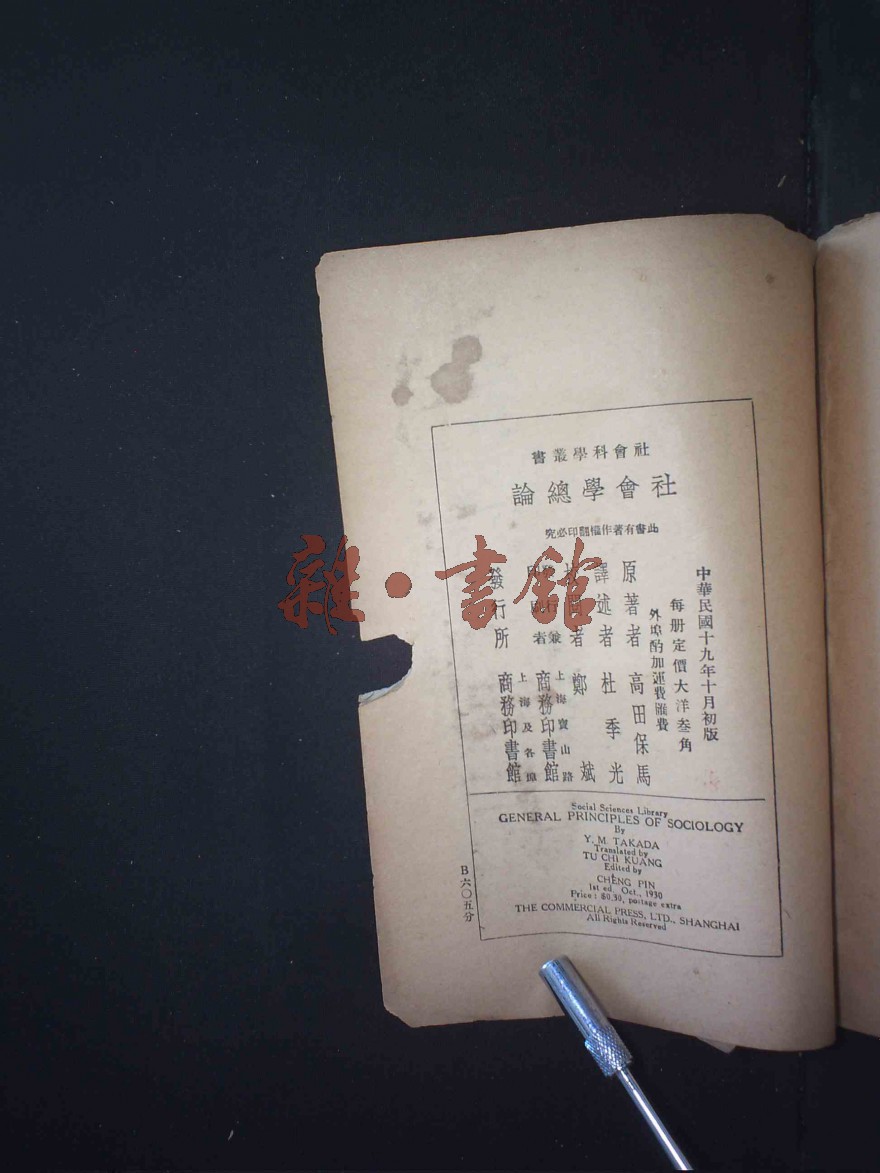 社會科學叢書
社會學總論
此書有著作權翻印必究
中華民國十九年十月初版
每册定價大洋叁角
外埠酌加運費匯費
原著者 高田保馬
譯述者 杜季光
者 鄭斌
行兼
者
上海寶山路
商務印書館
發行所
上海及各埠
商務印書館
Social Sciences Library
GENERAL PRINCIPLES OF SOCIOLOGY
By
Y. M. TAKADA
Translated by
TU CHI KUANG
Edited by
CHENG PIN
1st ed. Oct., 1930
Price: $0.30, postage extra
THE COMMERCIAL PRESS, LTD., SHANGHAI
All Rights Reserved
B六〇五分
雜·書館